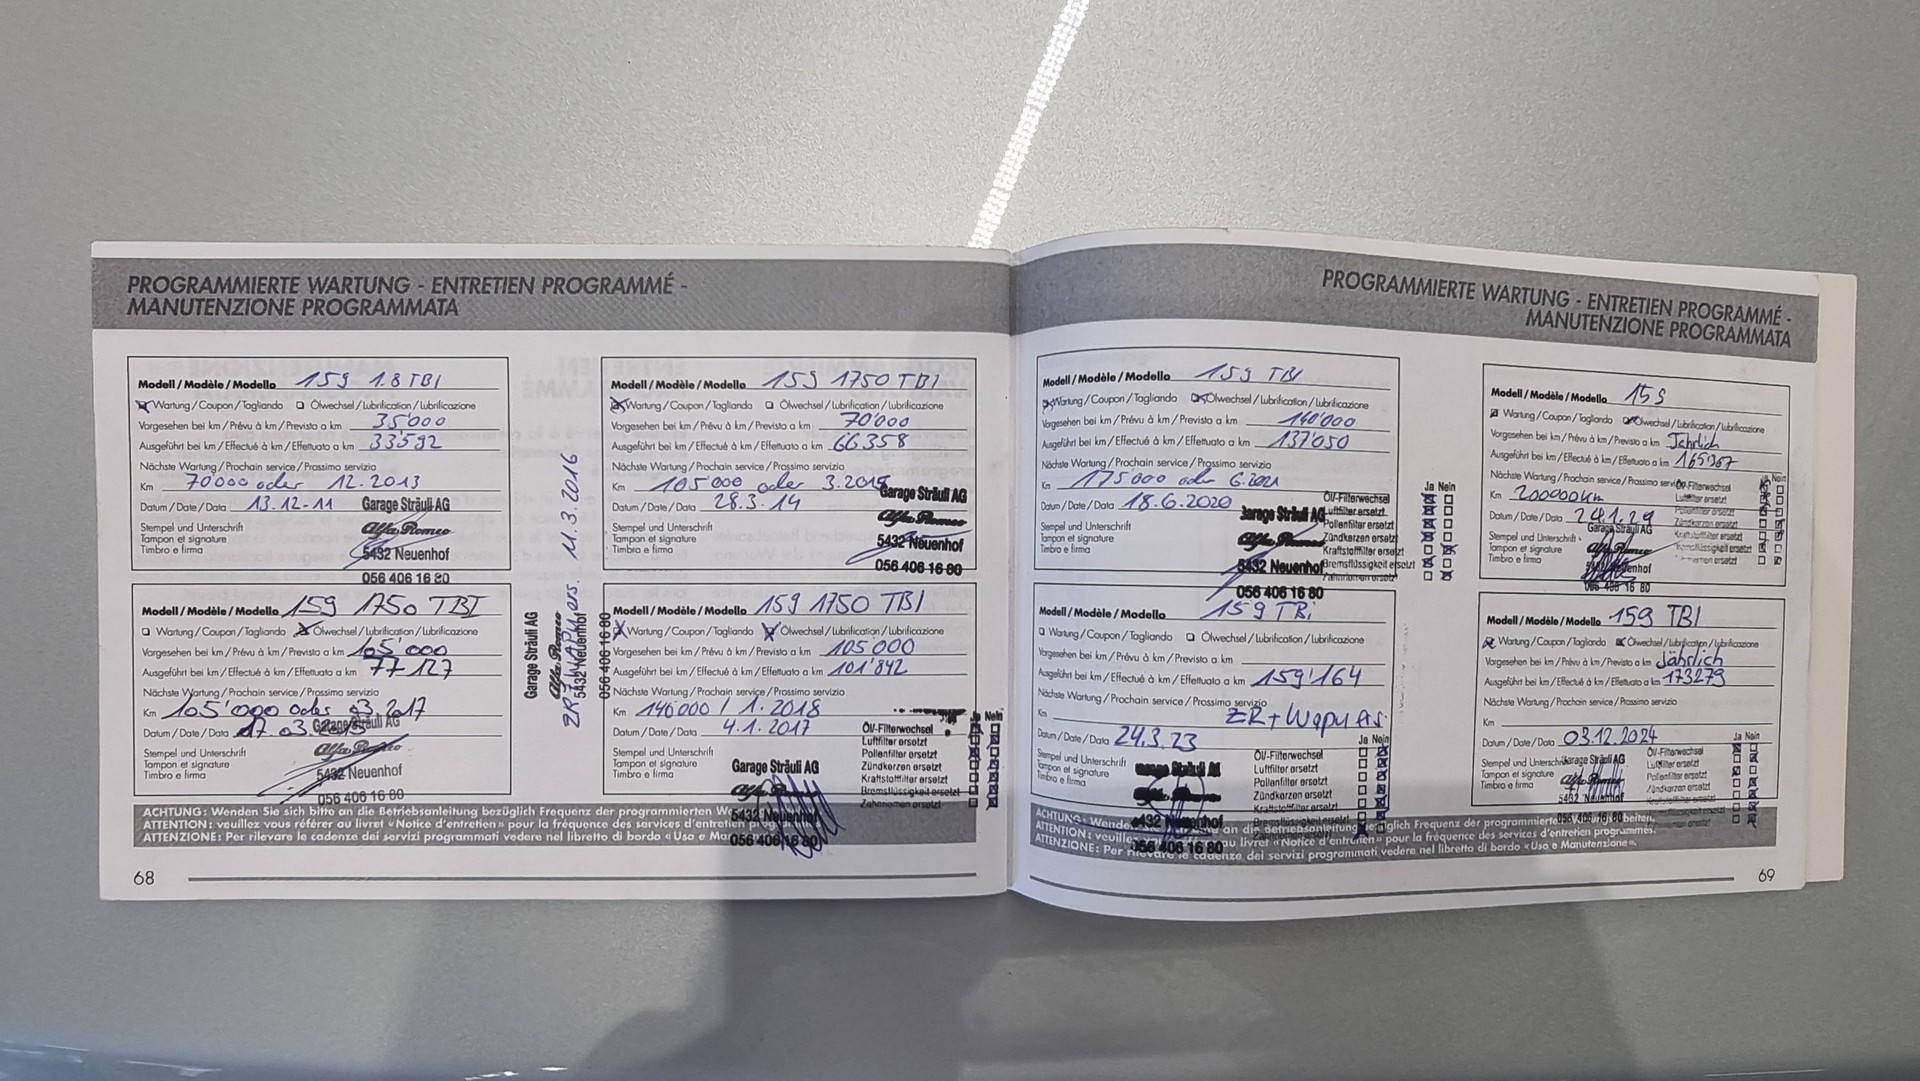 PROGRAMMIERTE WARTUNG - ENTRETIEN PROGRAMMÉ -
MANUTENZIONE PROGRAMMATA
Modell / Modèle / Modello 159 1.8 TBI
Wartung / Coupon / Tagliando Ölwechsel / Lubrification / Lubrificazione
Vorgesehen bei km / Prévu à km / Previsto a km 35'000
Ausgeführt bei km / Effectué à km / Effettuato a km 33'592
Nächste Wartung / Prochain service / Prossimo servizio
Km 70'000 oder 12.2013
Datum / Date / Data 13.12-11
Stempel und Unterschrift
Tampon et signature
Timbro e firma
Garage Sträuli AG
Alfa Romeo
5432 Neuenhof
056 406 16 80
Modell / Modèle / Modello 159 1750 TBI
Wartung / Coupon / Tagliando Ölwechsel / Lubrification / Lubrificazione
Vorgesehen bei km / Prévu à km / Previsto a km 70'000
Ausgeführt bei km / Effectué à km / Effettuato a km 66'358
Nächste Wartung / Prochain service / Prossimo servizio
Km 105'000 oder 3.2015
Datum / Date / Data 28.3.14
Stempel und Unterschrift
Tampon et signature
Timbro e firma
Garage Sträuli AG
Alfa Romeo
5432 Neuenhof
056 406 16 80
11.3.2016
Garage Sträuli AG
Alfa Romeo
5432 Neuenhof
056 406 16 80
Modell / Modèle / Modello 159 1750 TBI
Wartung / Coupon / Tagliando Ölwechsel / Lubrification / Lubrificazione
Vorgesehen bei km / Prévu à km / Previsto a km 105'000
Ausgeführt bei km / Effectué à km / Effettuato a km 77'127
Nächste Wartung / Prochain service / Prossimo servizio
Km 105'000 oder 03.2017
Datum / Date / Data 17.03.2015
Stempel und Unterschrift
Tampon et signature
Timbro e firma
Garage Sträuli AG
Alfa Romeo
5432 Neuenhof
056 406 16 80
Modell / Modèle / Modello 159 1750 TBI
Wartung / Coupon / Tagliando Ölwechsel / Lubrification / Lubrificazione
Vorgesehen bei km / Prévu à km / Previsto a km 105'000
Ausgeführt bei km / Effectué à km / Effettuato a km 101'842
Nächste Wartung / Prochain service / Prossimo servizio
Km 140'000 / 1.2018
Datum / Date / Data 4.1.2017
Stempel und Unterschrift
Tampon et signature
Timbro e firma
Garage Sträuli AG
Alfa Romeo
5432 Neuenhof
056 406 16 80
Ja Nein
Öl/-Filterwechsel
Luftfilter ersetzt
Pollenfilter ersetzt
Zündkerzen ersetzt
Kraftstoffilter ersetzt
Bremsflüssigkeit ersetzt
Zahnriemen ersetzt
ACHTUNG: Wenden Sie sich bitte an die Betriebsanleitung bezüglich Frequenz der programmierten
ATTENTION: veuillez vous référer au livret «Notice d'entretien» pour la fréquence des services d'entretien
ATTENZIONE: Per rilevare le cadenze dei servizi programmati vedere nel libretto di bordo «Uso e
68
PROGRAMMIERTE WARTUNG - ENTRETIEN PROGRAMMÉ -
MANUTENZIONE PROGRAMMATA
Modell / Modèle / Modello 159 TBI
Wartung / Coupon / Tagliando Ölwechsel / Lubrification / Lubrificazione
Vorgesehen bei km / Prévu à km / Previsto a km 140'000
Ausgeführt bei km / Effectué à km / Effettuato a km 137'050
Nächste Wartung / Prochain service / Prossimo servizio
Km 175'000 oder 6.2021
Datum / Date / Data 18.6.2020
Stempel und Unterschrift
Tampon et signature
Timbro e firma
Garage Sträuli AG
Alfa Romeo
5432 Neuenhof
056 406 16 80
Ja Nein
Öl/-Filterwechsel
Luftfilter ersetzt
Pollenfilter ersetzt
Zündkerzen ersetzt
Kraftstoffilter ersetzt
Bremsflüssigkeit ersetzt
Zahnriemen ersetzt
Modell / Modèle / Modello 159
Wartung / Coupon / Tagliando Ölwechsel / Lubrification / Lubrificazione
Vorgesehen bei km / Prévu à km / Previsto a km Jährlich
Ausgeführt bei km / Effectué à km / Effettuato a km 165'367
Nächste Wartung / Prochain service / Prossimo servizio
Km 200000km
Datum / Date / Data
Stempel und Unterschrift
Tampon et signature
Timbro e firma
Garage Sträuli AG
Alfa Romeo
5432 Neuenhof
056 406 16 80
Ja Nein
Öl/-Filterwechsel
Luftfilter ersetzt
Pollenfilter ersetzt
Zündkerzen ersetzt
Kraftstoffilter ersetzt
Bremsflüssigkeit ersetzt
Zahnriemen ersetzt
Modell / Modèle / Modello 159 TBi
Wartung / Coupon / Tagliando Ölwechsel / Lubrification / Lubrificazione
Vorgesehen bei km / Prévu à km / Previsto a km
Ausgeführt bei km / Effectué à km / Effettuato a km 159'164
Nächste Wartung / Prochain service / Prossimo servizio
Km ZR + Wapu
Datum / Date / Data 24.3.23
Stempel und Unterschrift
Tampon et signature
Timbro e firma
5432 Neuenhof
056 406 16 80
Ja Nein
Öl/-Filterwechsel
Luftfilter ersetzt
Pollenfilter ersetzt
Zündkerzen ersetzt
Kraftstoffilter ersetzt
Bremsflüssigkeit ersetzt
Modell / Modèle / Modello 159 TBI
Wartung / Coupon / Tagliando Ölwechsel / Lubrification / Lubrificazione
Vorgesehen bei km / Prévu à km / Previsto a km Jährlich
Ausgeführt bei km / Effectué à km / Effettuato a km 173279
Nächste Wartung / Prochain service / Prossimo servizio
Km
Datum / Date / Data 03.12.2024
Stempel und Unterschrift
Tampon et signature
Timbro e firma
Garage Sträuli AG
Alfa Romeo
5432 Neuenhof
056 406 16 80
Ja Nein
Öl/-Filterwechsel
Luftfilter ersetzt
Pollenfilter ersetzt
Zündkerzen ersetzt
Kraftstoffilter ersetzt
Bremsflüssigkeit ersetzt
Zahnriemen ersetzt
ACHTUNG: Wenden an die Betriebsanleitung bezüglich Frequenz der programmierten
ATTENTION: veuillez au livret «Notice d'entretien» pour la fréquence des services d'entretien programmés.
ATTENZIONE: Per rilevare le cadenze dei servizi programmati vedere nel libretto di bordo «Uso e Manutenzione».
69